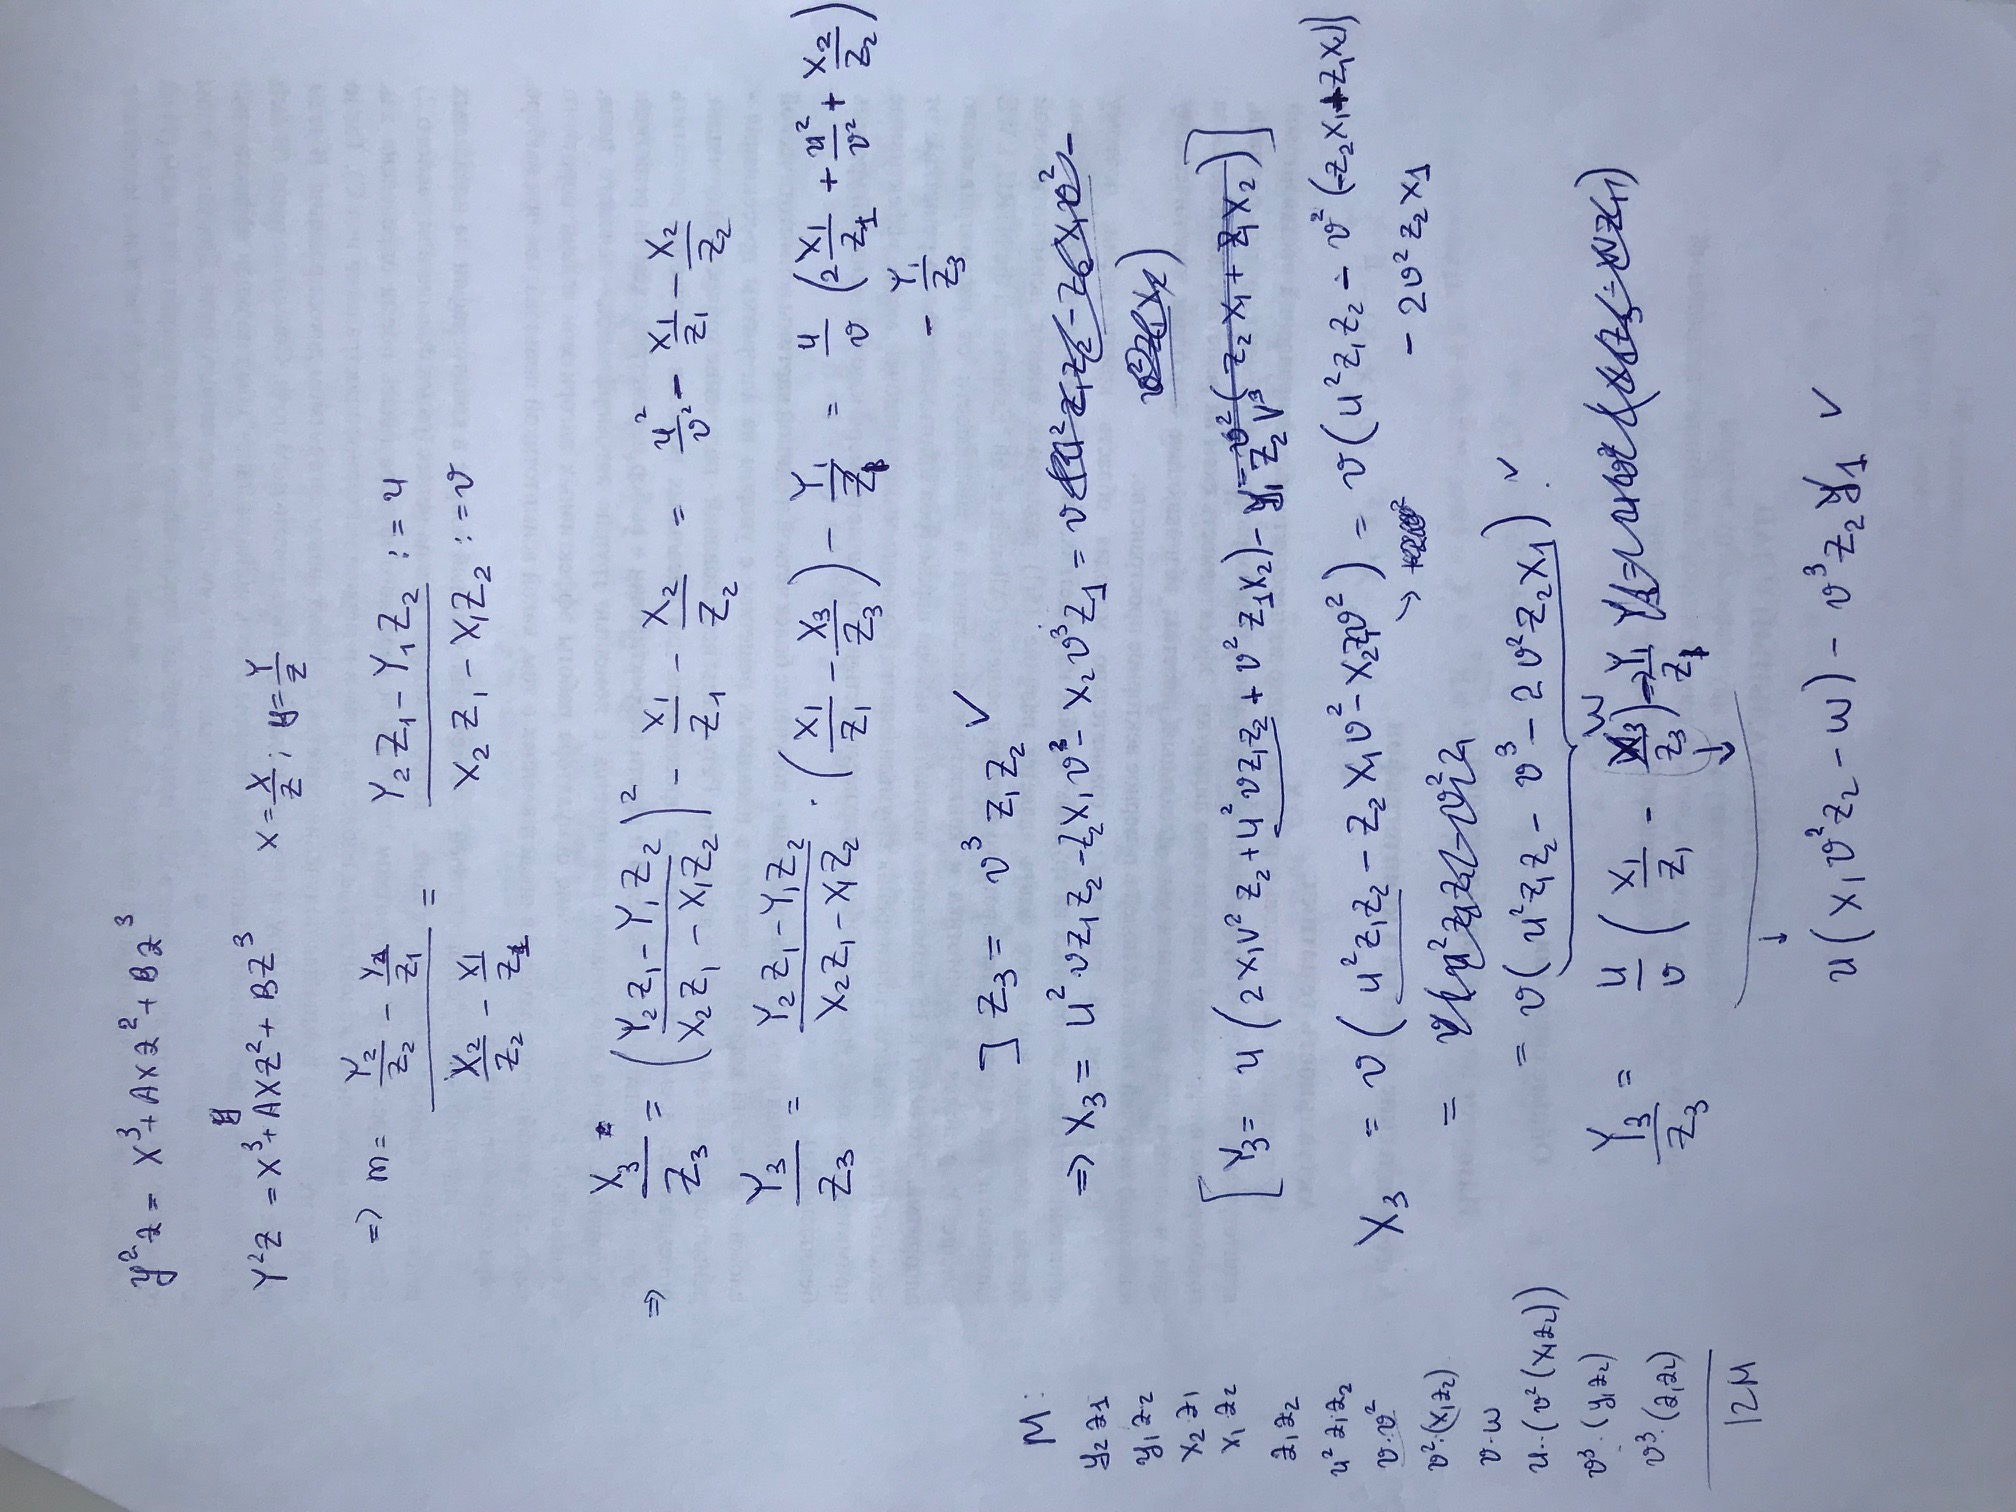 y²z = x³ + Axz² + Bz³
Y²Z = X³ + AXZ² + BZ³   x = X/Z ; y = Y/Z
=> m = (Y₂/Z₂ - Y₁/Z₁)/(X₂/Z₂ - X₁/Z₁) = (Y₂Z₁ - Y₁Z₂ := u)/(X₂Z₁ - X₁Z₂ := v)
=> X₃/Z₃ = ((Y₂Z₁ - Y₁Z₂)/(X₂Z₁ - X₁Z₂))² - X₁/Z₁ - X₂/Z₂ = u²/v² - X₁/Z₁ - X₂/Z₂
Y₃/Z₃ = (Y₂Z₁ - Y₁Z₂)/(X₂Z₁ - X₁Z₂) · (X₁/Z₁ - X₃/Z₃) - Y₁/Z₁ = u/v (2 X₁/Z₁ + u²/v² + X₂/Z₂)
- Y₁/Z₃
] Z₃ = v³ Z₁Z₂ ✓
=> X₃ = u²·vZ₁Z₂ - Z₂X₁v³ - X₂v³Z₁ = v
[Y₃ = u(2X₁v²Z₂ + u²vZ₁Z₂ + v²Z₁X₂) - y₁Z₂V³]
X₃ = v(u²Z₁Z₂ - Z₂X₁v² - X₂Z₁v²) = v(u²Z₁Z₂ - v²(-Z₂X₁ + Z₁X₂)
- 2v²Z₂X₁
=
= v(u²Z₁Z₂ - v³ - 2v²Z₂X₁) ✓
w
Y₃/Z₃ = u/v (X₁/Z₁ - X₃/Z₃) - Y₁/Z₁
u(X₁v²Z₂ - w) - v³Z₂Y₁ ✓
M:
y₂z₁
y₁z₂
x₂z₁
x₁z₂
z₁z₂
u²z₁z₂
v·v²
v²·(x₁z₂)
v·w
u·(v²(x₁z₂))
v³·(y₁z₂)
v³·(z₁z₂)
12M